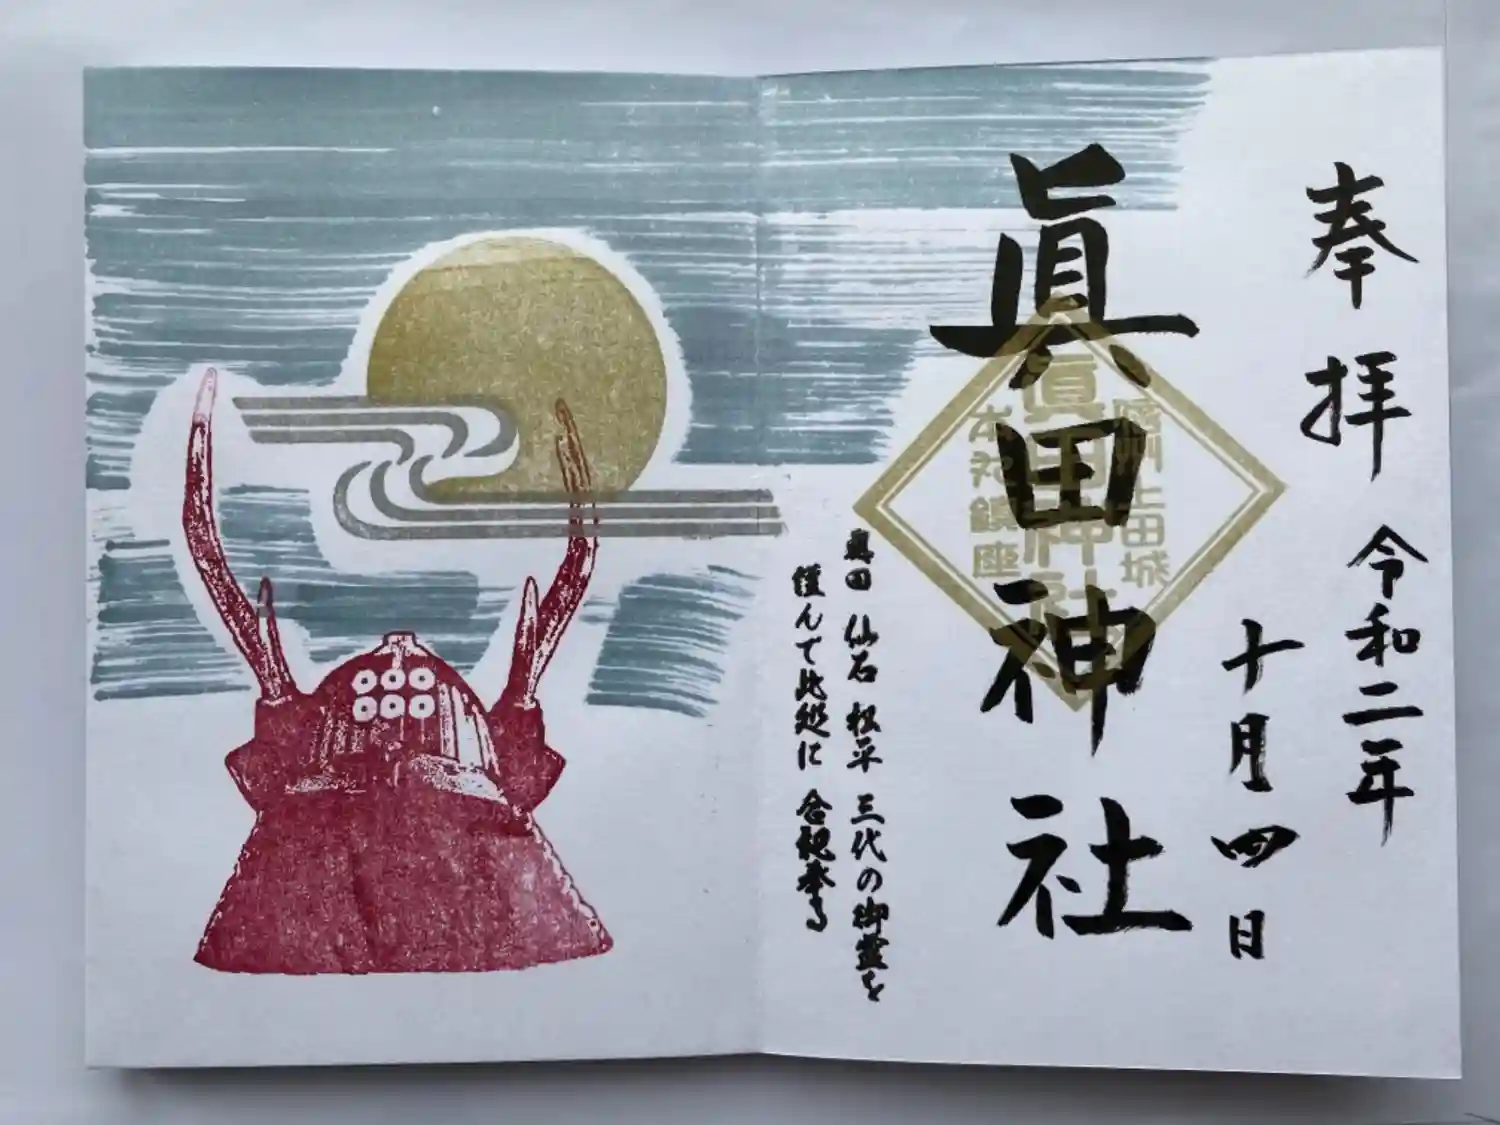 奉拝
令和二年
十月四日
眞田神社
信州上田城
眞田神社
本丸鎮座
眞田 仙石 松平 三代の御霊を
謹んで此処に 合祀奉る